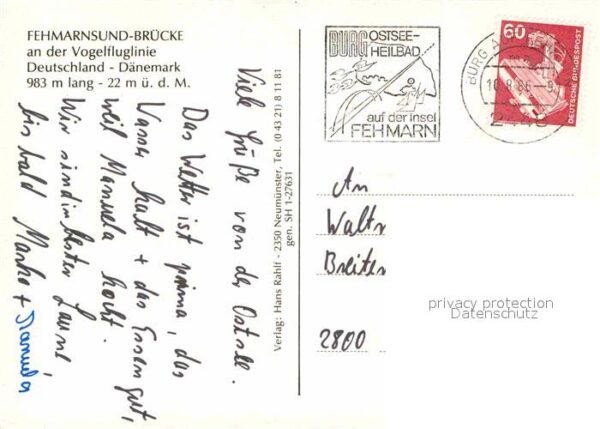 FEHMARNSUND-BRÜCKE
an der Vogelfluglinie
Deutschland - Dänemark
983 m lang - 22 m ü. d. M.
Viele Grüße von der Ostsee.
Das Wetter ist prima, das
Wasser kalt + das Essen gut,
weil Manuela kocht.
Wir sind in bester Laune
bis bald Marko + Manuela
Verlag: Hans Rahlf - 2350 Neumünster, Tel. (0 43 21) 8 11 81
gen. SH 1-27631
BURG OSTSEE-
HEILBAD
auf der Insel
FEHMARN
BURG A
10.8.86-9
2448
60
DEUTSCHE BUNDESPOST
An
Walter
Breiter
2800
privacy protection
Datenschutz